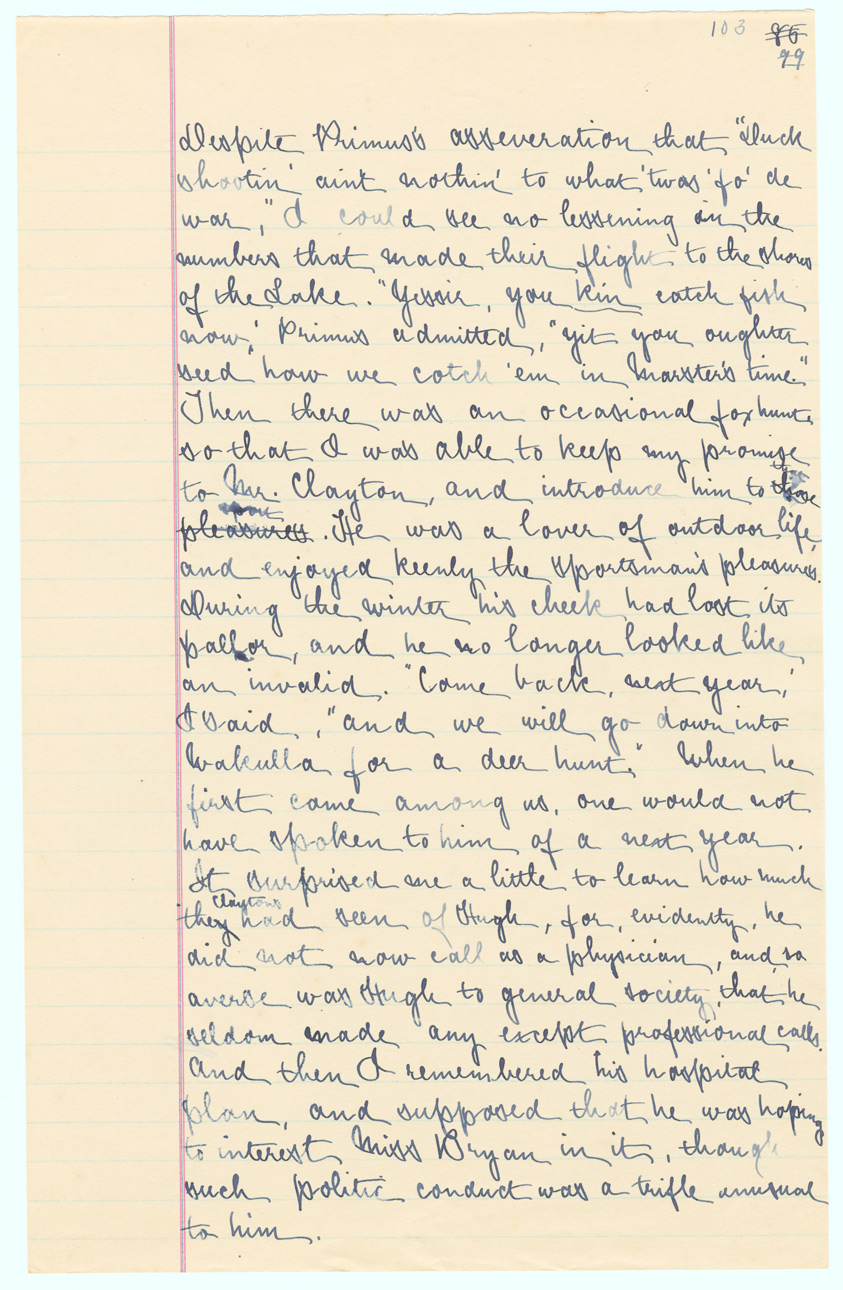 103 86
99
Despite Primus's asseveration that "Duck
shootin' ain't nothin' to what 'twas 'fo' de
war," I could see no lessening in the
numbers that made their flight to the shores
of the Lake. "Yessir, you kin catch fish
now," Primus admitted, "yit you oughter
seed how we cotch 'em in Marster's time."
Then there was an occasional fox hunt,
so that I was able to keep my promise
to Mr. Clayton, and introduce him to
pleasures. He was a lover of outdoor life,
and enjoyed keenly the sportsman's pleasures.
During the winter his cheek had lost its
pallor, and he no longer looked like
an invalid. "Come back, next year,"
I said, "and we will go down into
Wakulla for a deer hunt." When he
first came among us, one would not
have spoken to him of a next year.
It surprised me a little to learn how much
Claytons
they had seen of Hugh, for, evidently, he
did not now call as a physician, and so
averse was Hugh to general society, that he
seldom made any except professional calls.
And then I remembered his hospital
plan, and supposed that he was hoping
to interest Miss Bryan in it, though
such politic conduct was a trifle unusual
to him.